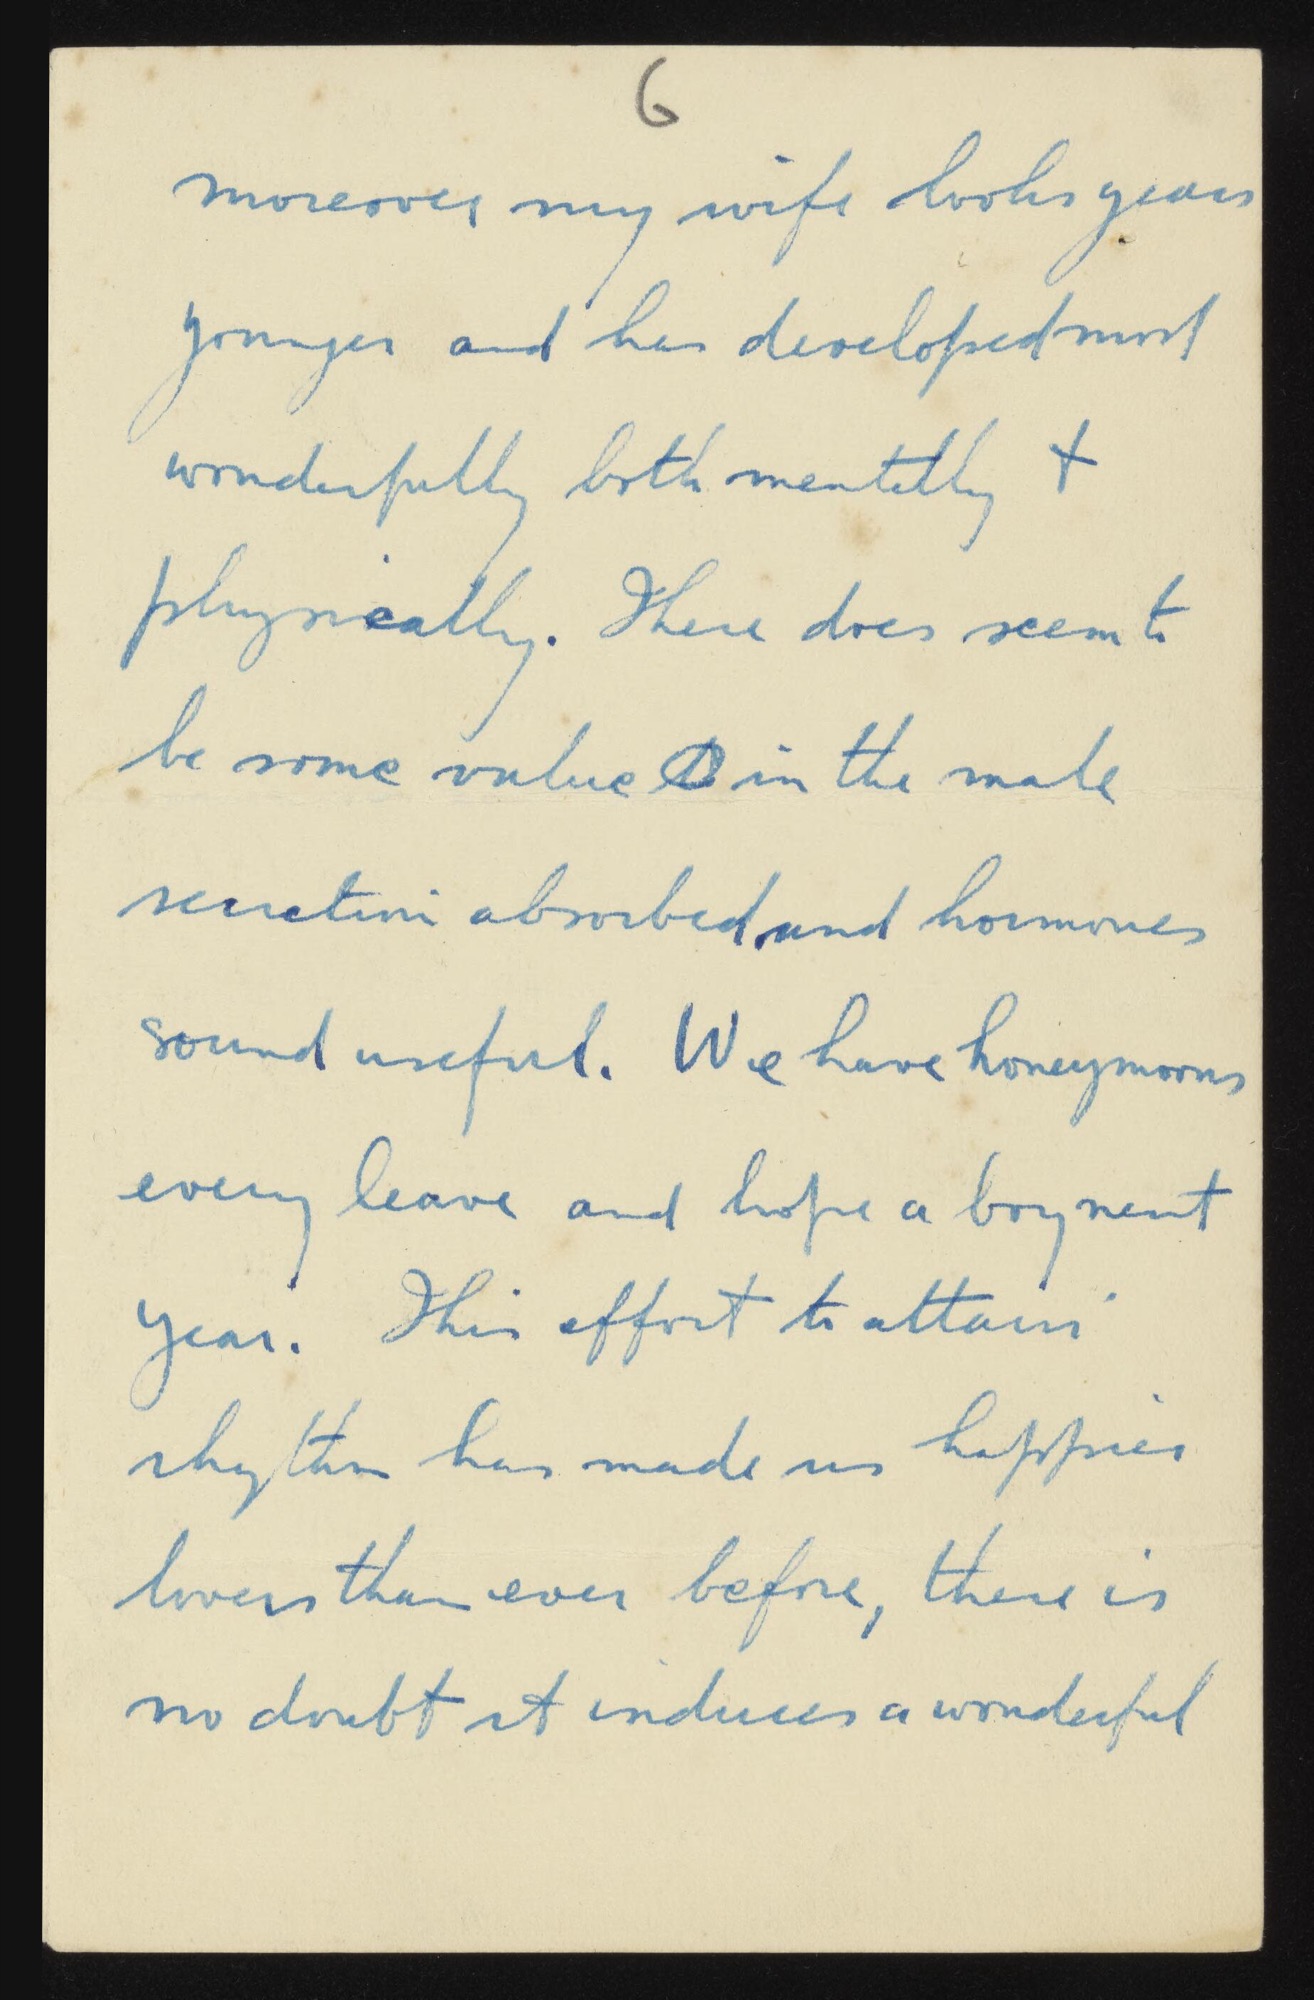 6
moreover my wife looks years
younger and has developed most
wonderfully both mentally +
physically. There does seem to
be some value in the male
secretion absorbed, and hormones
sound useful. We have honeymoons
every leave and hope a boy next
year. This effort to attain
rhythm has made us happier
lovers than ever before, there is
no doubt it induces a wonderful